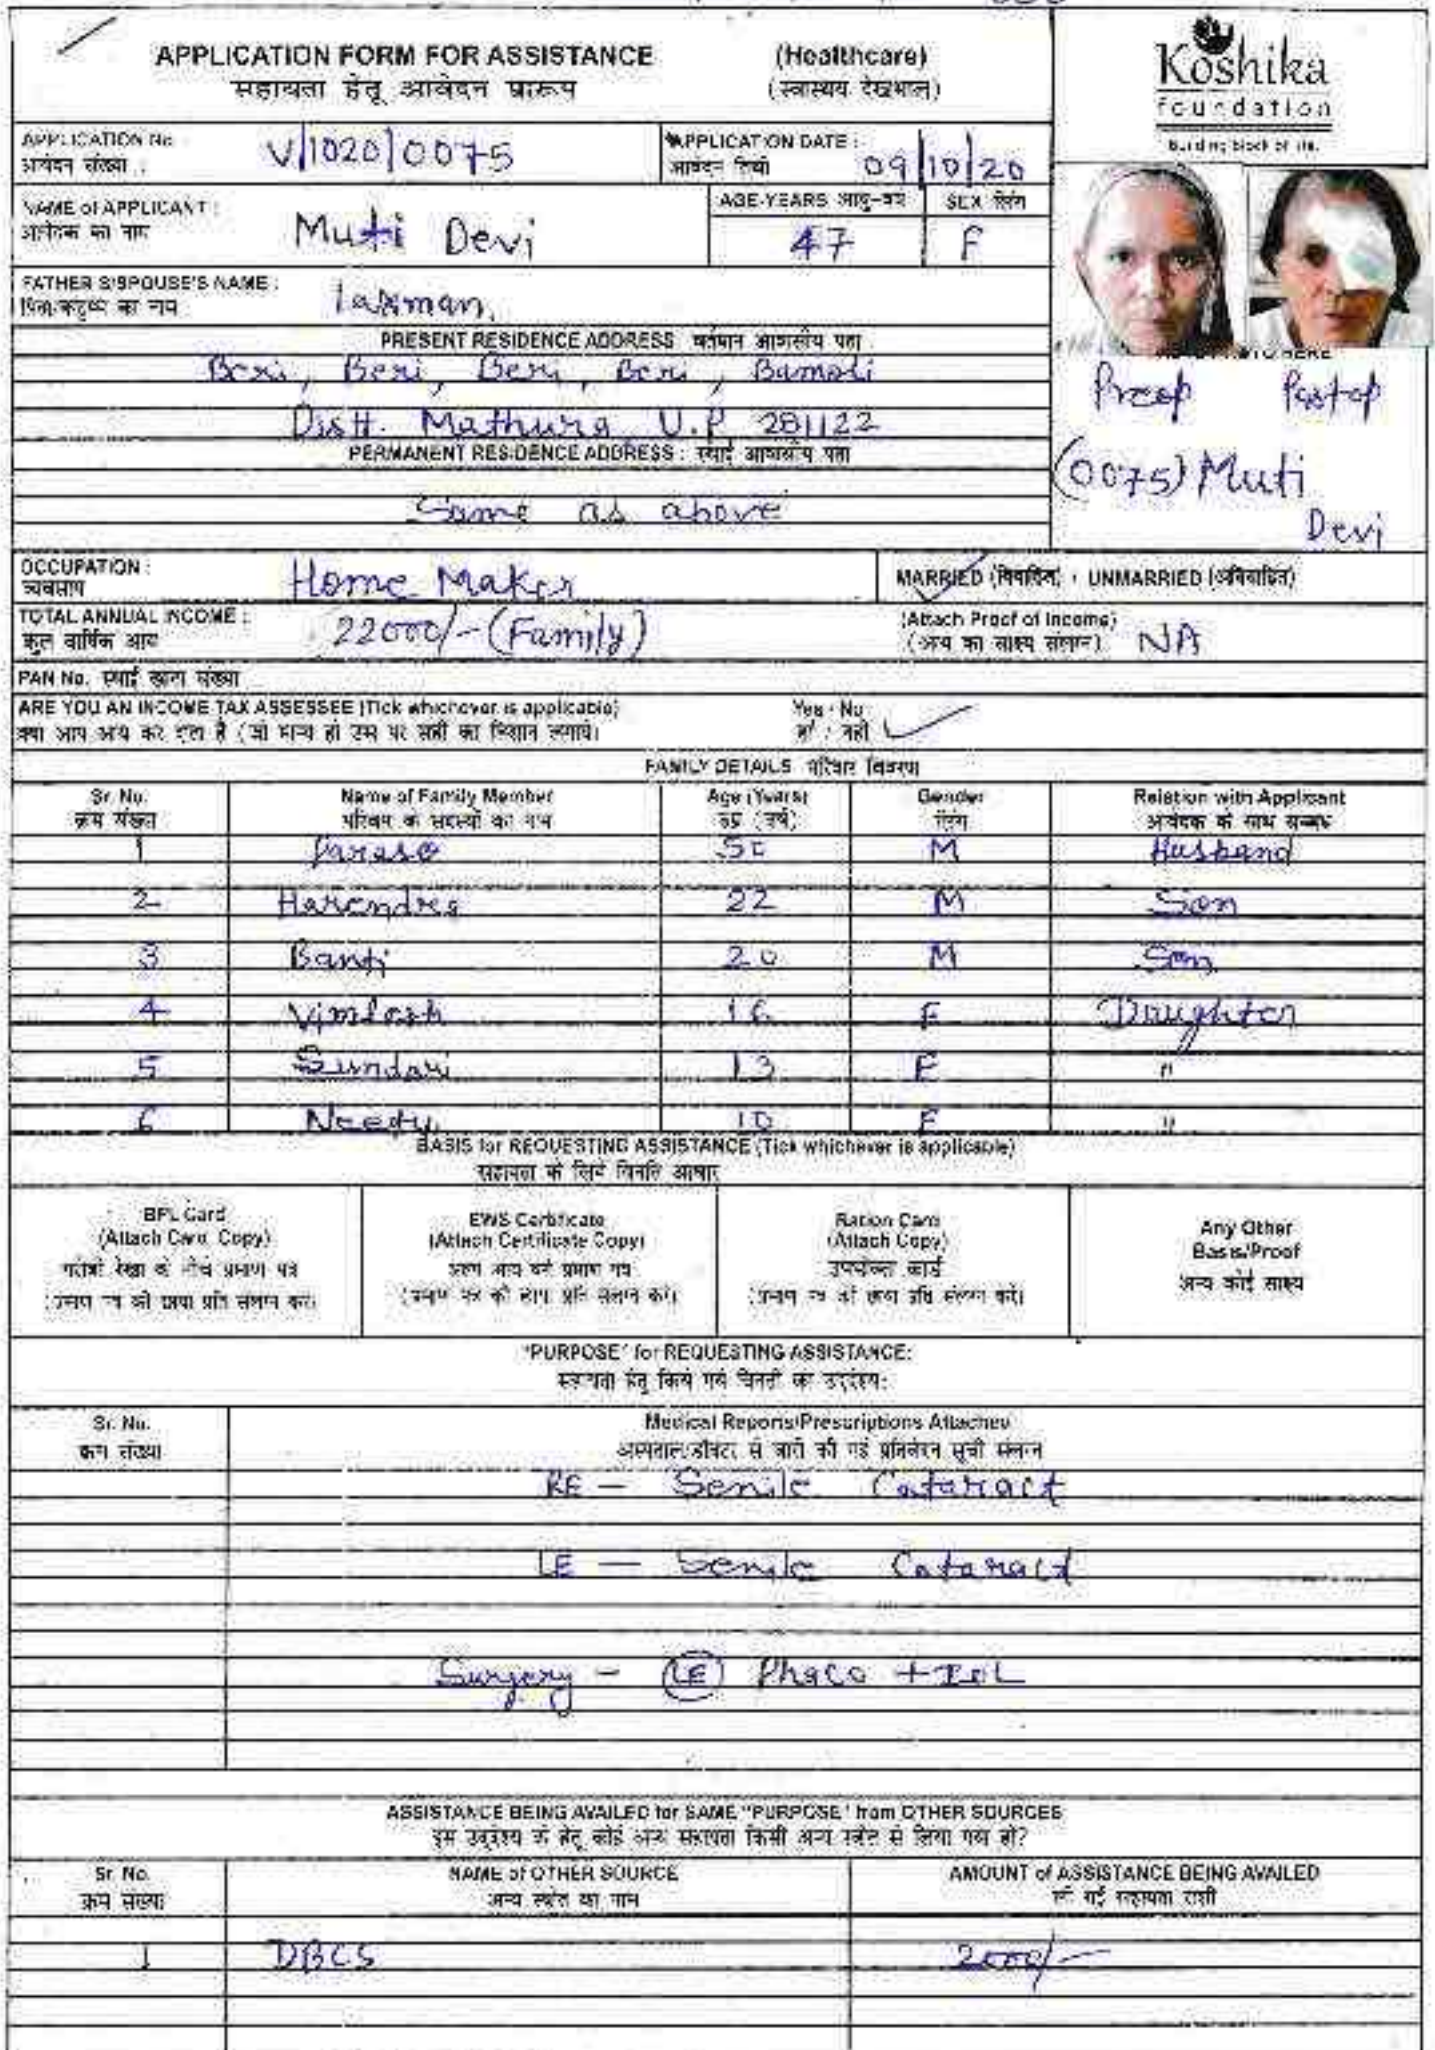 APPLICATION FORM FOR ASSISTANCE (Healthcare)
सहायता हेतू आवेदन प्रारूप (स्वास्थय देखभाल)
Koshika
foundation
APPLICATION No.
आवेदन संख्या :
V/1020/0075
APPLICATION DATE :
आवेदन तिथी
09/10/20
NAME of APPLICANT :
आवेदक का नाम
Muti Devi
AGE-YEARS आयु-वर्ष
47
SEX लिंग
F
FATHER'S/SPOUSE'S NAME :
laxman
PRESENT RESIDENCE ADDRESS वर्तमान आवासीय पता
Beri, Beri, Beri, Beri,
Distt. Mathura U.P 281122
PERMANENT RESIDENCE ADDRESS : स्थाई आवासीय पता
Same as above
Preop Postop
(0075) Muti
Devi
OCCUPATION :
व्यवसाय
Home Maker
MARRIED (विवाहित) / UNMARRIED (अविवाहित)
TOTAL ANNUAL INCOME :
कुल वार्षिक आय
22000/- (Family)
(Attach Proof of Income)
(आय का साक्ष्य संलग्न)
NA
PAN No. स्थाई खाता संख्या
ARE YOU AN INCOME TAX ASSESSEE (Tick whichever is applicable)
Yes / No
हां / नही
FAMILY DETAILS परिवार विवरण
Sr. No. Name of Family Member Age (Years) Gender Relation with Applicant
क्रम संख्या परिवार के सदस्यों का नाम उम्र (वर्ष) लिंग आवेदक के साथ सम्बन्ध
1 M Husband
2 Harendra 22 M Son
3 Banti 20 M Son
4 16 F Daughter
5 Sundari 13 F "
6 10 F "
BASIS for REQUESTING ASSISTANCE (Tick whichever is applicable)
सहायता के लिये विनति आधार
BPL Card
(Attach Card Copy)
गरीबी रेखा के नीचे प्रमाण पत्र
(प्रमाण पत्र की छाया प्रति संलग्न करें)
EWS Certificate
(Attach Certificate Copy)
अल्प आय वर्ग प्रमाण पत्र
(प्रमाण पत्र की छाया प्रति संलग्न करें)
Ration Card
(Attach Copy)
उपभोक्ता कार्ड
(प्रमाण पत्र की छाया प्रति संलग्न करें)
Any Other
Basis/Proof
अन्य कोई साक्ष्य
"PURPOSE" for REQUESTING ASSISTANCE:
सहायता हेतु किये गये विनती का उद्देश्य:
Sr. No. Medical Reports/Prescriptions Attached
क्रम संख्या
RE - Senile Cataract
LE - Senile Cataract
Surgery - (LE) Phaco + IOL
ASSISTANCE BEING AVAILED for SAME "PURPOSE" from OTHER SOURCES
इस उद्देश्य के हेतू कोई अन्य सहायता किसी अन्य स्त्रोत से लिया गया हो?
Sr. No. NAME of OTHER SOURCE AMOUNT of ASSISTANCE BEING AVAILED
क्रम संख्या अन्य स्त्रोत का नाम ली गई सहायता राशी
1 DBCS 2000/-